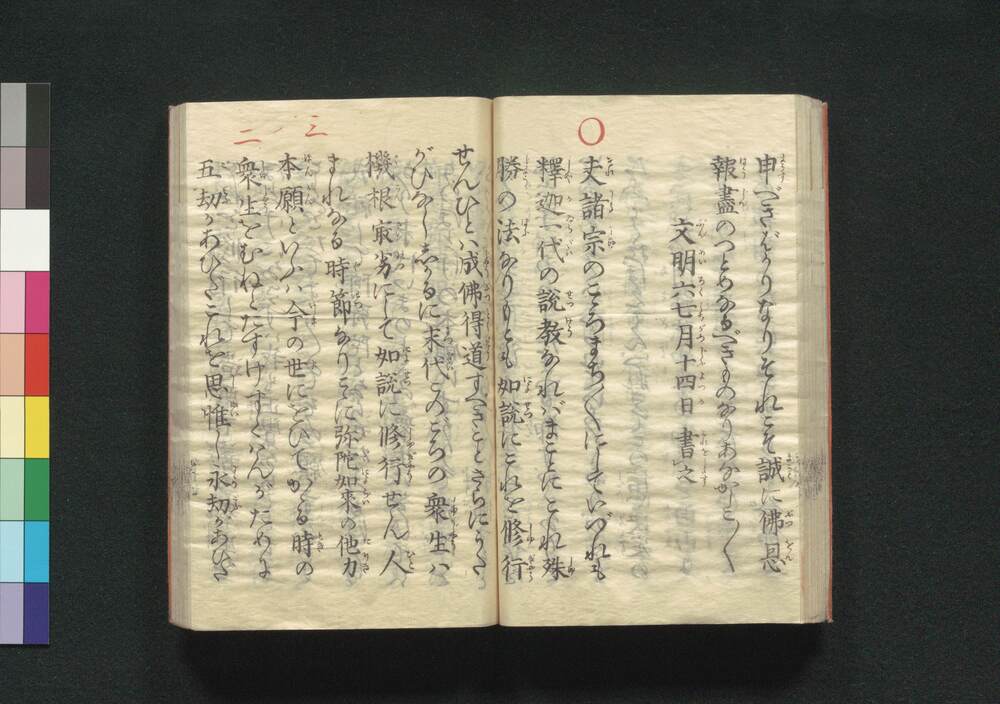 申べきばかりなりそれこそ誠に佛恩
報盡のつとめなるべきものなりあなかしこ〱
文明六七月十四日書之
夫諸宗のこゝろまち〱にしていづれも
釋迦一代の說教なればまことにこれ殊
勝の法なりもとも如說にこれを修行
せんひとハ成佛得道すべきことさらにうた
がひなしこゝしかるに末代このごろの衆生ハ
機根最劣にして如說に修行せん人
まれなる時節なりこゝに弥陀如來の他力
本願といふハ今の世にをひてかゝる時の
衆生をむねとたすけすくはんがために
五劫があひだこれを思惟し永劫があひだ
三ノ二